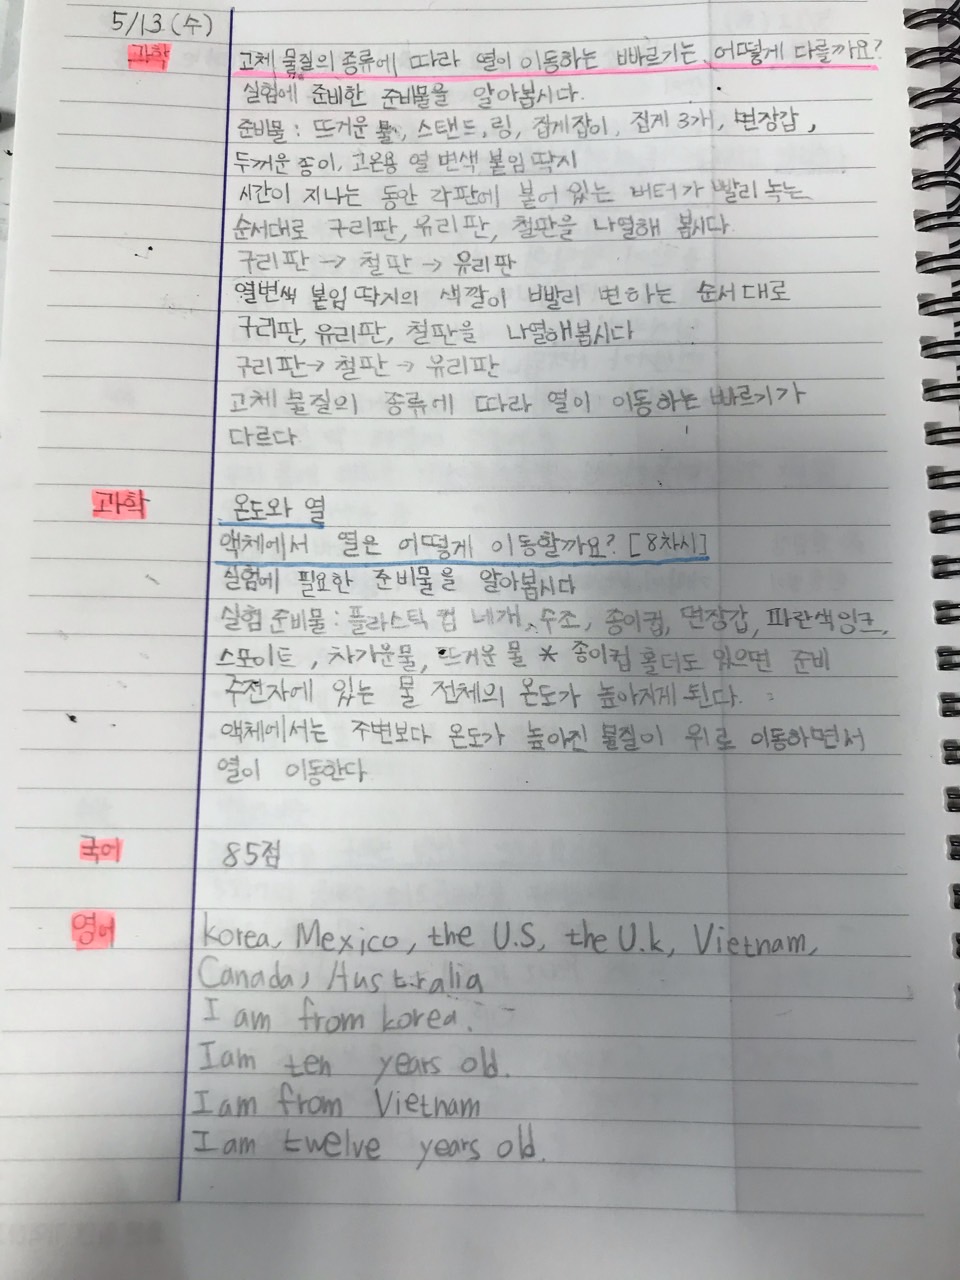 5/13 (수)
과학 고체 물질의 종류에 따라 열이 이동하는 빠르기는 어떻게 다를까요?
실험에 준비한 준비물을 알아봅시다.
준비물 : 뜨거운 물, 스탠드, 링, 집게잡이, 집게 3개, 면장갑,
두꺼운 종이, 고온용 열 변색 붙임 딱지
시간이 지나는 동안 각판에 붙어 있는 버터가 빨리 녹는
순서대로 구리판, 유리판, 철판을 나열해 봅시다.
구리판 → 철판 → 유리판
열변색 붙임 딱지의 색깔이 빨리 변하는 순서대로
구리판, 유리판, 철판을 나열해봅시다
구리판 → 철판 → 유리판
고체 물질의 종류에 따라 열이 이동하는 빠르기가
다르다
과학 온도와 열
액체에서 열은 어떻게 이동할까요? [8차시]
실험에 필요한 준비물을 알아봅시다
실험 준비물 : 플라스틱 컵 네개, 수조, 종이컵, 면장갑, 파란색잉크,
스포이트, 차가운물, 뜨거운 물 * 종이컵 홀더도 있으면 준비
주전자에 있는 물 전체의 온도가 높아지게 된다.
액체에서는 주변보다 온도가 높아진 물질이 위로 이동하면서
열이 이동한다
국어 85점
영어 korea, Mexico, the U.S, the U.k, Vietnam,
Canada, Australia
I am from korea.
I am ten years old.
I am from Vietnam
I am twelve years old.